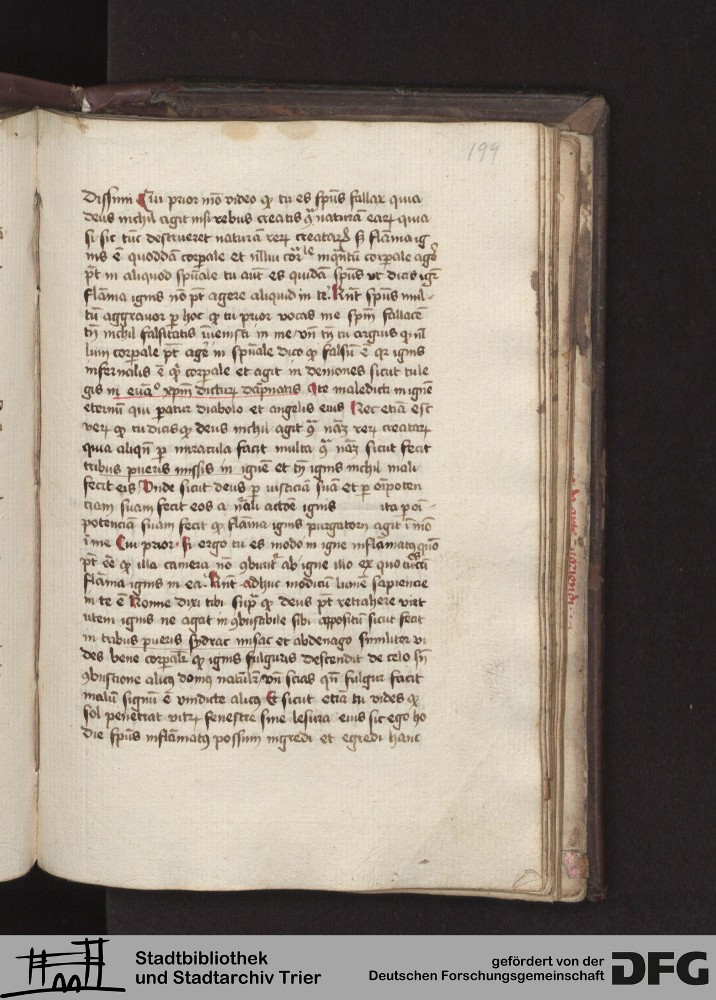 199
dissimi Cui prior mo video qz tu es spus fallax quia
deus nichil agit nisi rebus creatis 9a naturam earum quia
si sic tuc destrueret naturam rerum creatarum sz flamma ig
nis e quoddam corpale et nlliu corale instrumentum corpale agere
pt in aliquod spuale tu aut es quida spus vt dicis igr
flamma ignis no pt agere aliquid in te Rnt spus mul
tu aggravor p hoc qz tu prior vocas me spm fallace
tn nichil falsitatis inuenisti in me vn tn tu arguis qz nl
lum corpale pt agere in spuale dico qz falsu e qz ignis
infernalis e qz corpale et agit in demones sicut tu le
gis in eua xpm dicturum dampnatis Ite maledicti in igne
eternu qui patur diabolo et angelis eius Nec etia est
verum qz tu dicis qz deus nichil agit 9a nam rerum creatarum
quia aliqn p miracula facit multa 9a nam sicut fecit
tribus pueris missis in igne et tn ignis nichil mali
fecit eis Unde sicut deus p iusticia sua et p oipoten
ciam suam fecit eos a nali actoe ignis ita p oi
potencia suam fecit qz flamma ignis purgatorij agit i mo
i me Cui prior Si ergo tu es modo in igne inflamatus quo
pt ee qz illa camera no 9burit ab igne illo ex quo
flamma ignis in ea Rnt adhuc modicu lumen sapiencie
in te e Nonne dixi tibi supra qz deus pt retrahere virt
utem ignis ne agat in 9bustibile sibi appositu sicut fecit
in tribus pueris sydrac misac et abdenago similiter vi
des bene corpalit qz ignis fulguris descendit de celo sn
9bustione alicuius domus nalr vn scias qn fulgur facit
malu signum e vindicte alicuius Et sicut etia tu vides qz
sol penetrat vitrum fenestre sine lesura eius sic ego ho
die spus inflamatus possum ingredi et egredi hanc
Stadtbibliothek
und Stadtarchiv Trier
gefördert von der
Deutschen Forschungsgemeinschaft
DFG